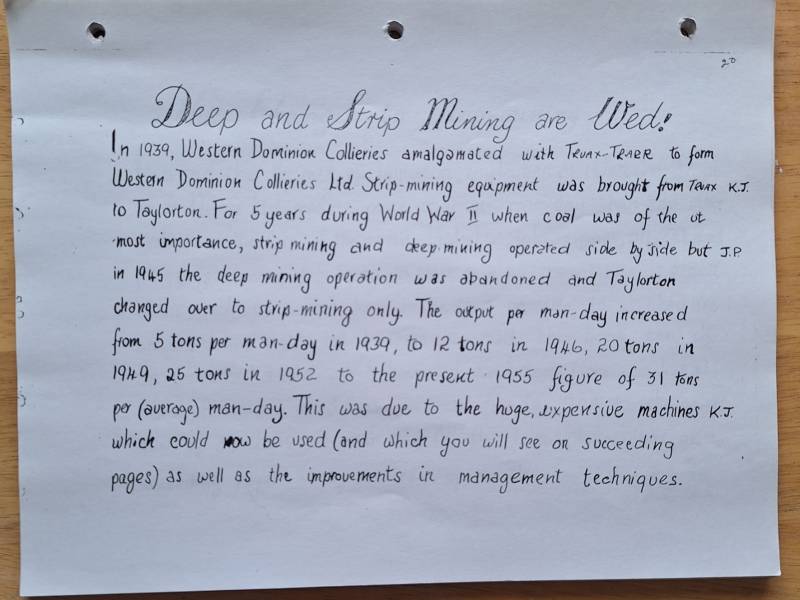 20
Deep and Strip Mining are Wed!
In 1939, Western Dominion Collieries amalgamated with TRUAX-TRAER to form
Western Dominion Collieries Ltd. Strip-mining equipment was brought from TRUAX K.J.
to Taylorton. For 5 years during World War II when coal was of the ut
-most importance, strip mining and deep mining operated side by side but J.P.
in 1945 the deep mining operation was abandoned and Taylorton
changed over to strip-mining only. The output per man-day increased
from 5 tons per man-day in 1939, to 12 tons in 1946, 20 tons in
1949, 25 tons in 1952 to the present 1955 figure of 31 tons
per (average) man-day. This was due to the huge, expensive machines K.J.
which could now be used (and which you will see on succeeding
pages) as well as the improvements in management techniques.